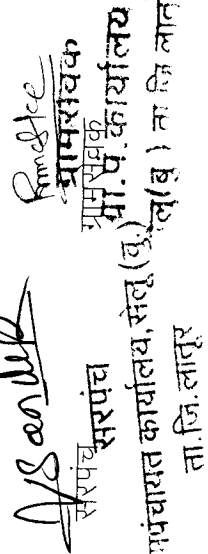 सरपंच
सरपंच
मपंचायत कार्यालय, सेलू (बु.)
ता.जि.लातूर
ग्रामसेवक
ग्राम सेवक
ग्रा.प. कार्यालय
लू(बु) ता जि लातू